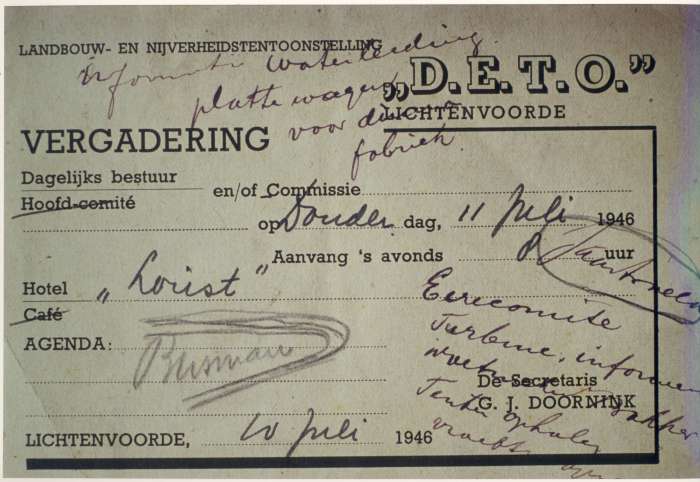 LANDBOUW- EN NIJVERHEIDSTENTOONSTELLING
waterleiding
„D.E.T.O.”
platte wagen
LICHTENVOORDE
voor
fabriek.
VERGADERING
Dagelijks bestuur
Hoofd-comité
en/of Commissie
op Donder dag, 11 Juli 1946
Aanvang 's avonds 8 uur
Hotel „Loüst”
Café
Eerecomite
AGENDA:
Turbine,
De Secretaris
G. J. DOORNINK
Tenten ophalen
LICHTENVOORDE, 10 Juli 1946